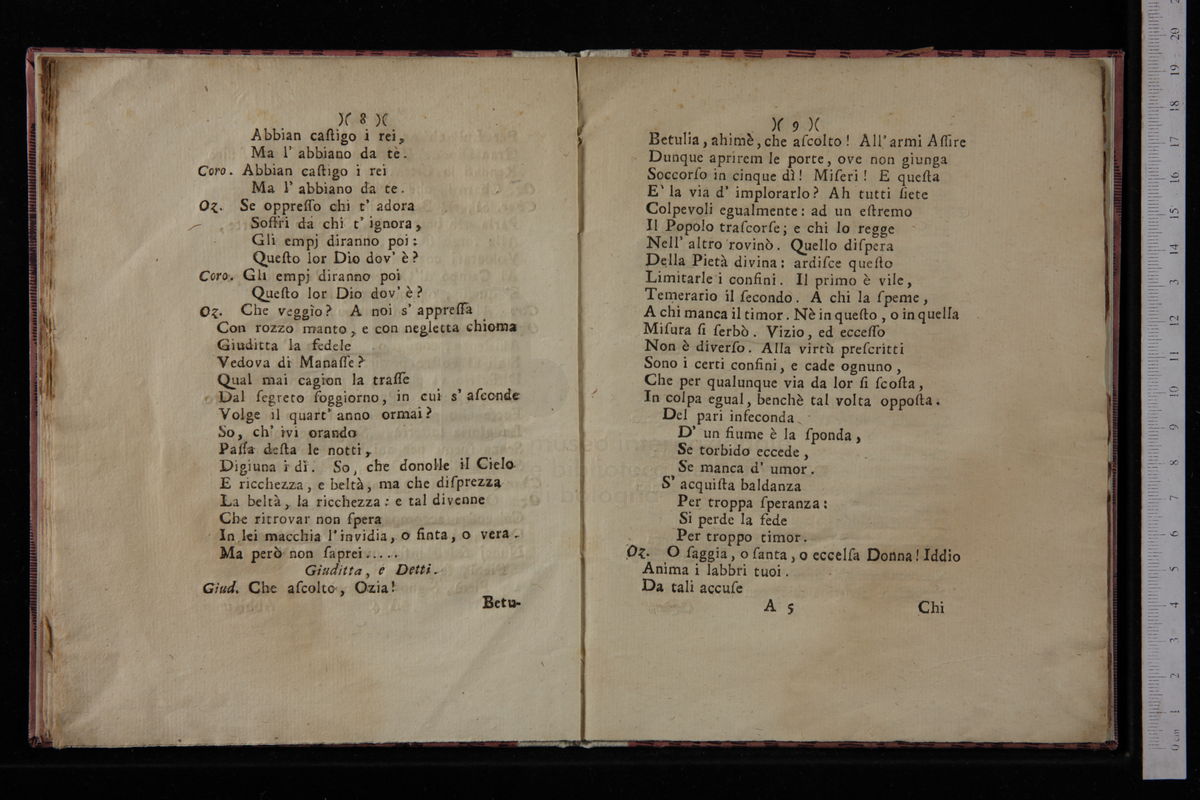 )( 8 )(
Abbian caſtigo i rei,
Ma l' abbiano da te.
Coro. Abbian caſtigo i rei
Ma l' abbiano da te.
Oz. Se oppreſſo chi t' adora
Soffri da chi t' ignora,
Gli empj diranno poi:
Queſto lor Dio dov' è?
Coro. Gli empj diranno poi
Queſto lor Dio dov' è?
Oz. Che veggio? A noi s' appreſſa
Con rozzo manto, e con negletta chioma
Giuditta la fedele
Vedova di Manaſſe?
Qual mai cagion la traſſe
Dal ſegreto ſoggiorno, in cui s' aſconde
Volge il quart' anno ormai?
So, ch' ivi orando
Paſſa deſta le notti,
Digiuna i dì. So, che donolle il Cielo
E ricchezza, e beltà, ma che diſprezza
La beltà, la ricchezza: e tal divenne
Che ritrovar non ſpera
In lei macchia l'invidia, o finta, o vera.
Ma però non ſaprei.....
Giuditta, e Detti.
Giud. Che aſcolto, Ozia!
Betu-
)( 9 )(
Betulia, ahimè, che aſcolto! All' armi Aſſire
Dunque aprirem le porte, ove non giunga
Soccorſo in cinque dì! Miſeri! E queſta
E' la via d' implorarlo? Ah tutti ſiete
Colpevoli egualmente: ad un eſtremo
Il Popolo traſcorſe; e chi lo regge
Nell' altro rovinò. Quello diſpera
Della Pietà divina: ardiſce queſto
Limitarle i confini. Il primo è vile,
Temerario il ſecondo. A chi la ſpeme,
A chi manca il timor. Nè in queſto, o in quella
Miſura ſi ſerbò. Vizio, ed ecceſſo
Non è diverſo. Alla virtù preſcritti
Sono i certi confini, e cade ognuno,
Che per qualunque via da lor ſi ſcoſta,
In colpa egual, benchè tal volta oppoſta.
Del pari infeconda
D' un fiume è la ſponda,
Se torbido eccede,
Se manca d' umor.
S' acquiſta baldanza
Per troppa ſperanza:
Si perde la fede
Per troppo timor.
Oz. O ſaggia, o ſanta, o eccelſa Donna! Iddio
Anima i labbri tuoi.
Da tali accuſe
A 5 Chi